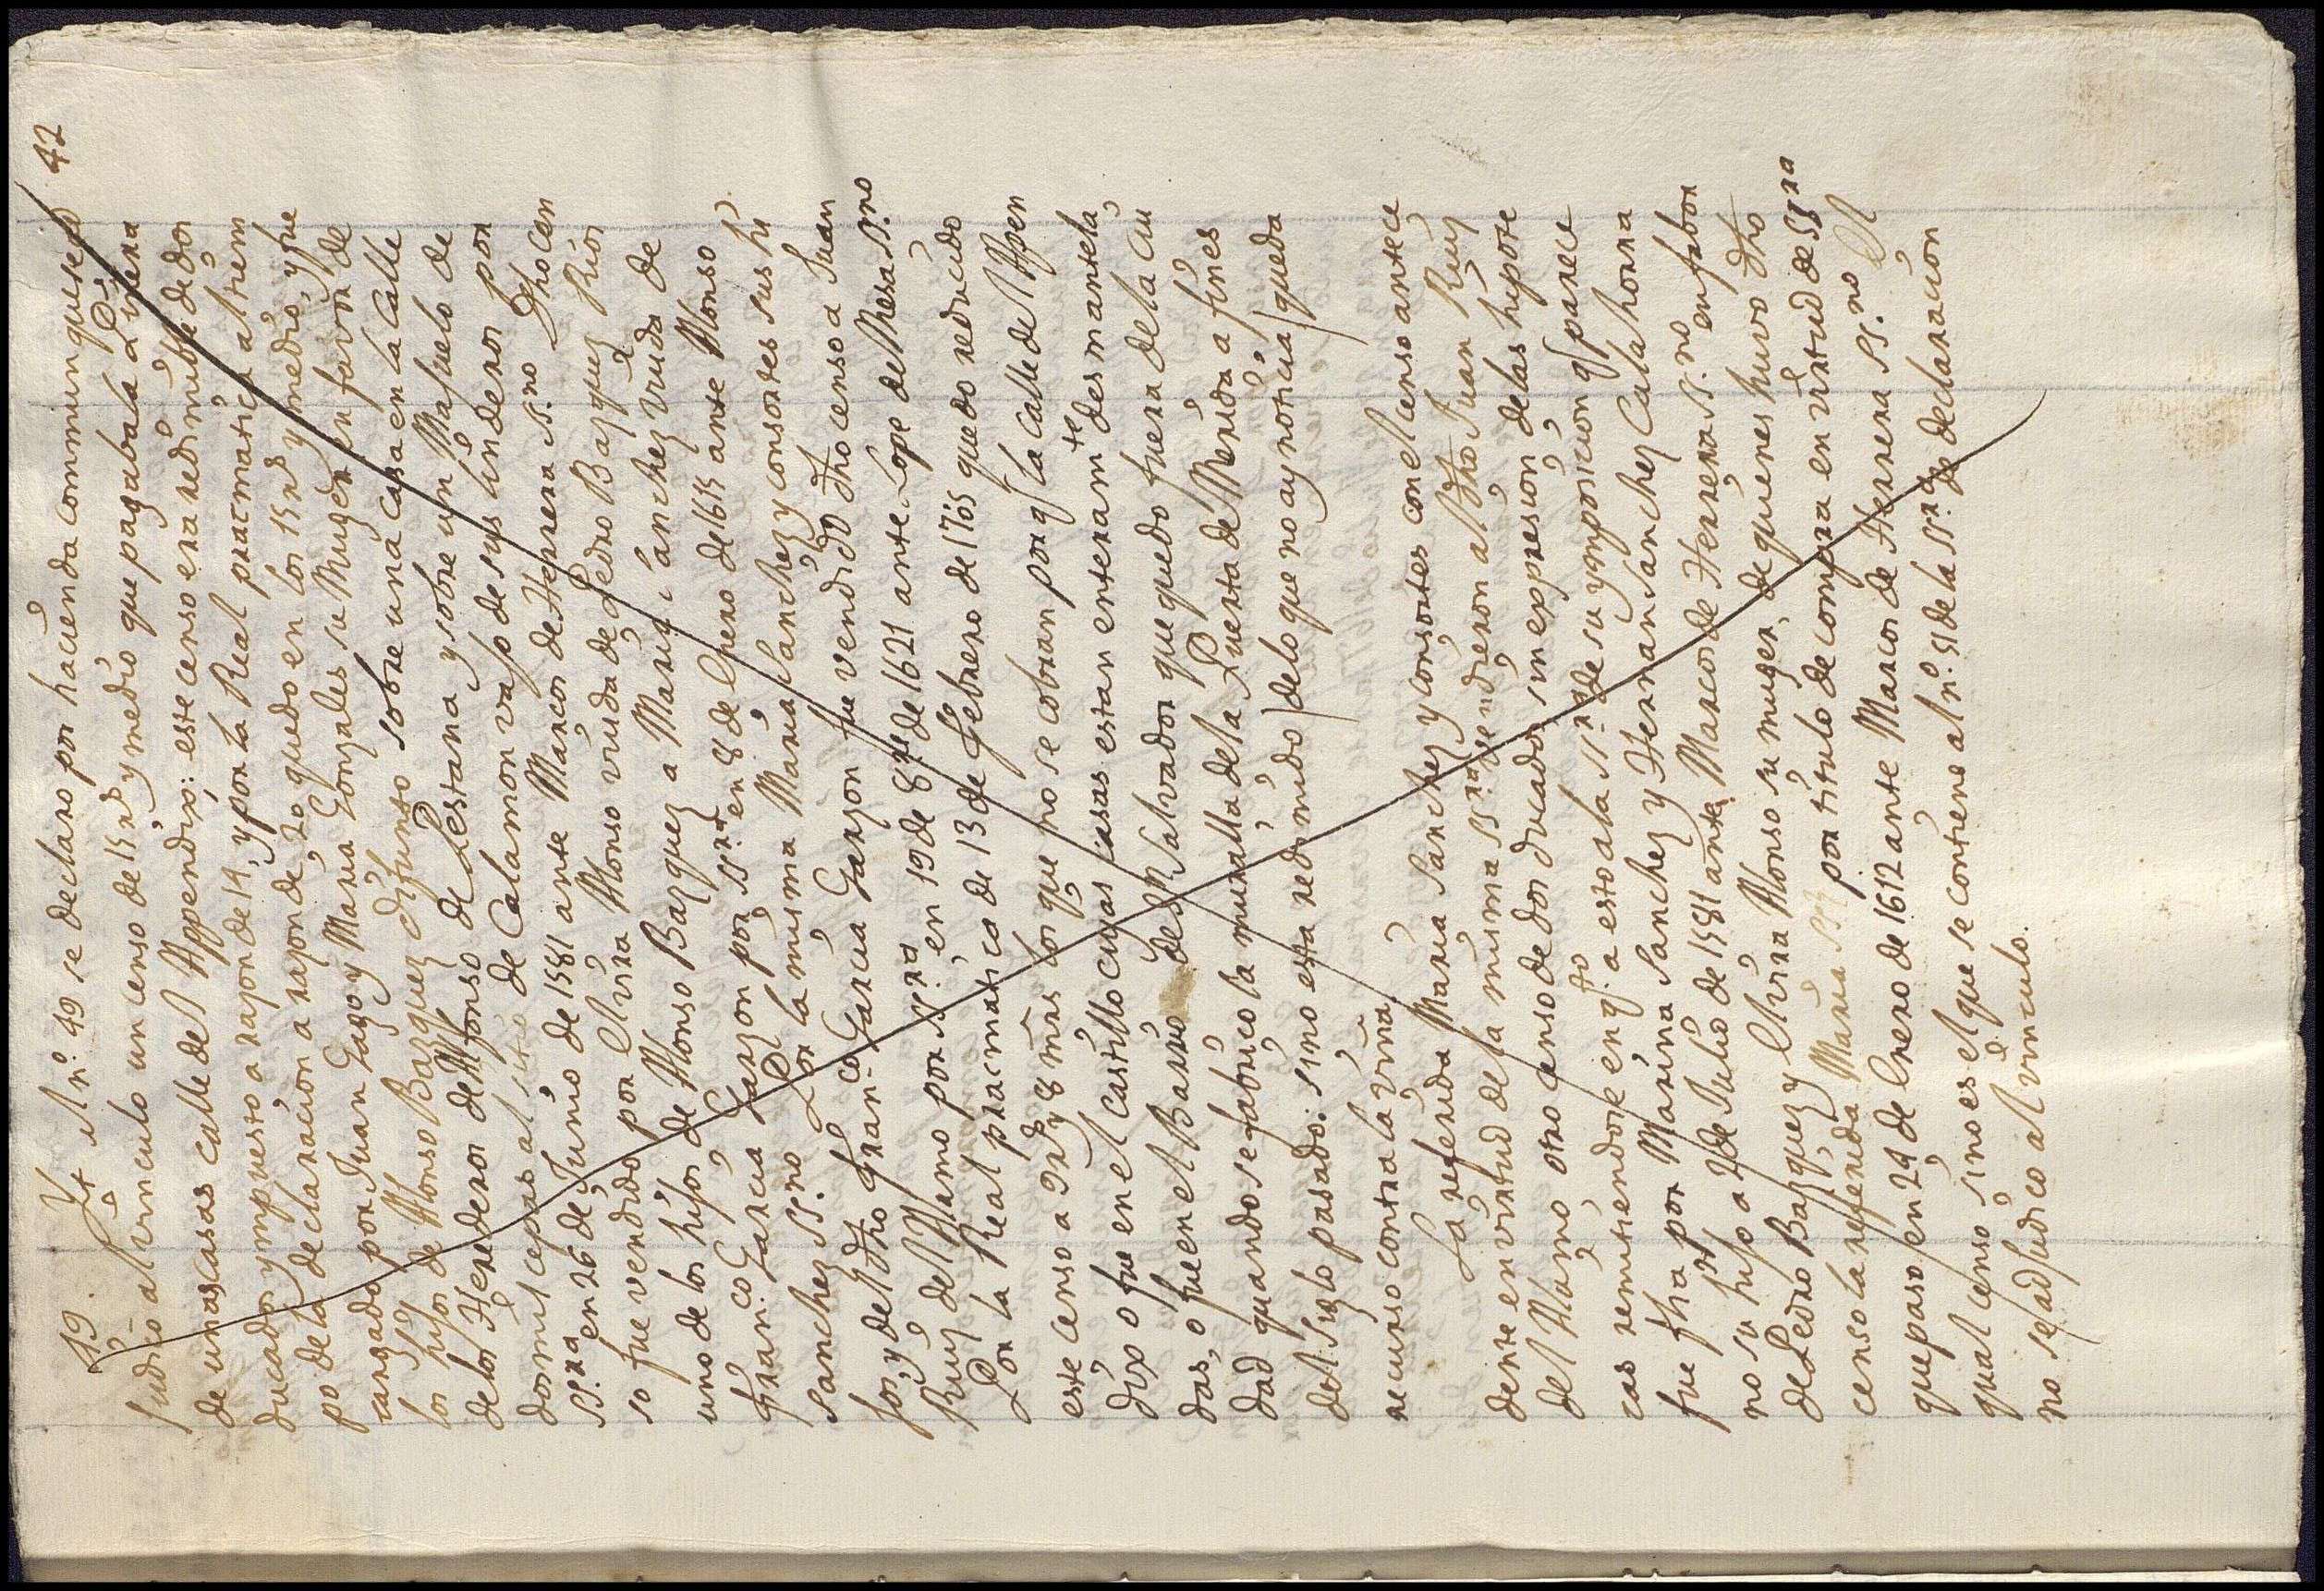 42
49. Yt el nº. 49 se declaro por hacienda commun que se ad
judicò al vinculo un censo de 15 rs y medio que pagaba la Viuda
de unas casas calle del Appendix: este censo era redimible de dos
ducados y impuesto a razon de 14, y por la Real pracmatica al tiem
po de la declaracion a razon de 20 quedo en los 15 rs y medio, y fue
cargado por Juan Gago y Maria Gonzales su Muger en favor de
los hijos de Alonso Bazquez difunto sobre una casa en la calle
de los Herederos de Alfonso de Pestana y sobre un Majuelo de
dos mil cepas al sitio de Calamon vajo de sus linderos por
SS.ra en 26 de Junio de 1581 ante Marcos de Herrera SS.no Dho cen
so fue vendido por Elvira Alonso viuda de Pedro Bazquez Rios
uno de los hijos de Alonso Bazquez a Maria Sanchez viuda de
Fran.co Garcia Garzon por SS.ra en 8 de Enero de 1615 ante Alonso
Sanchez SS.no Por la misma Maria Sanchez y consortes sus hi
jos, y del dho Fran.co Garcia Garzon fue vendido dho censo a Juan
Ruiz del Alamo por SS.ra en 19 de 8re de 1621 ante Lope de Mesa SS.no
Por la Real pracmatica de 13 de Febrero de 1705 quedo reducido
este censo a 9 rs y 8 mrs los que no se cobran porq la calle del Appen
dix o fue en el Castillo cuyas casas estan enteram.te desmantela
das, o fue en el Barrio de Sn Salvador que quedo fuera de la Ciu
dad quando se fabrico la muralla de la Puerta de Merida a fines
del siglo pasado: si no esta redimido / de lo que no ay noticia / queda
recurso contra la viña.
La referida Maria Sanchez y consortes con el censo antece
dente en virtud de la misma SS.ra vendieron al dho Juan Ruiz
del Alamo otro censo de dos ducados sin expresion de las hipote
cas remitiendose en q.to a esto a la SS.ra de su ymposicion q parece
fue fha por Marina Sanchez y Hernan Sanchez Calahorra
no su hijo a 7 de Julio de 1581 ante Marcos de Herrera SS.no en fabor
de Pedro Bazquez y Elvira Alonso su muger, de quienes huvo dho
censo la referida Maria Sz por titulo de compra en virtud de SS.ra
que paso en 24 de Enero de 1612 ante Marcos de Herrera SS.no El
qual censo si no es el que se contiene al nº. 51 de la SS.ra de declaracion
no se adjudicò al vinculo.